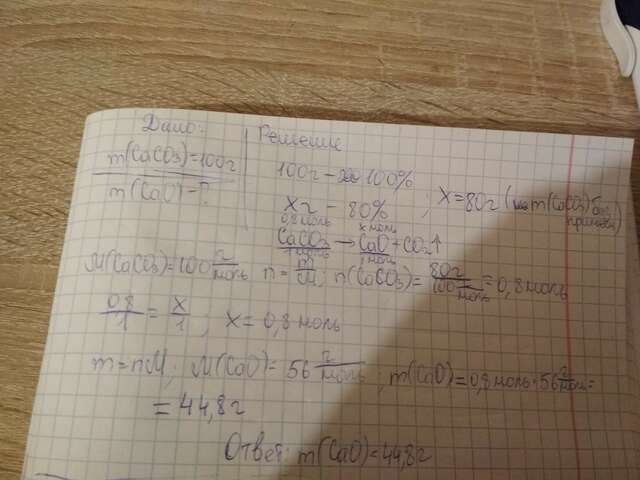 Дано:
Решение
m(CaCO3)=100г
m(CaO)-?
100г - 100%
Xг - 80% ; X=80г ( m(CaCO3) без
примесей)
0,8моль x моль
CaCO3 → CaO+CO2↑
1моль 1моль
M(CaCO3)=100 г/моль n= m/M ; n(CaCO3)= 80г/100 г/моль =0,8моль
0,8/1 = X/1 ; X=0,8моль
m=nM; M(CaO)= 56 г/моль ; m(CaO)=0,8моль·56 г/моль=
= 44,8г
Ответ: m(CaO)=44,8г